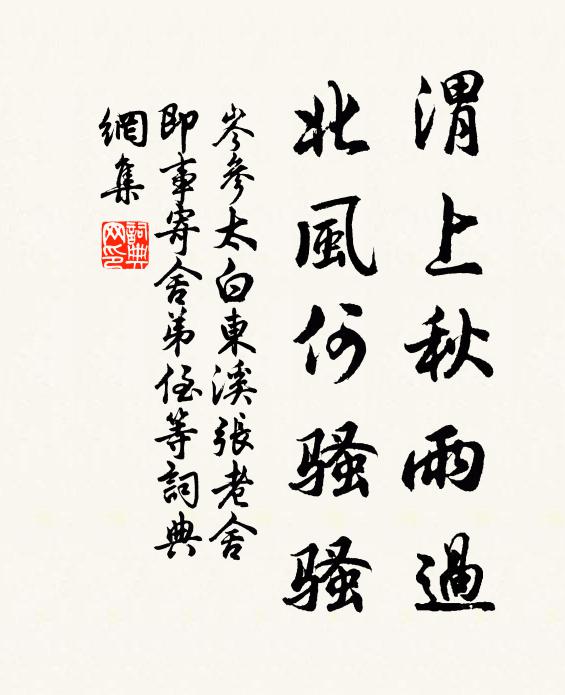 渭上秋雨過
北風何騷騷
岑參太白東溪張老舍
即事寄舍弟侄等詞典
網集
詞典網印